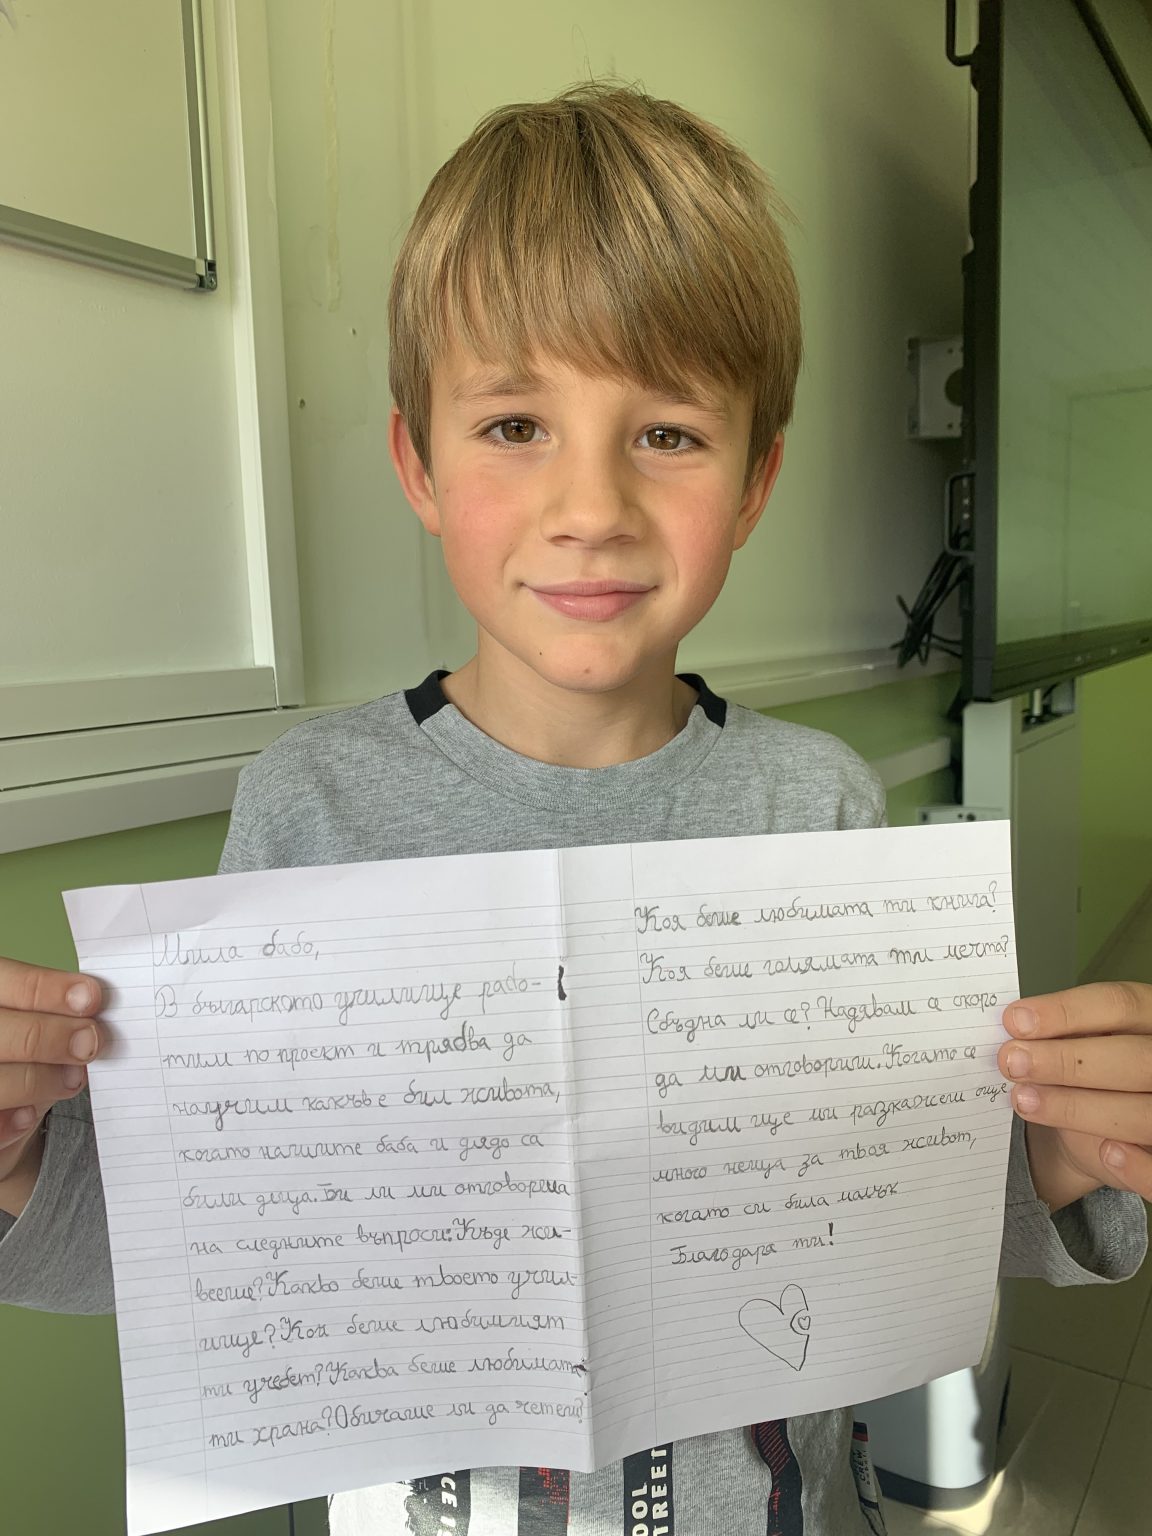 Мила бабо,
В българското училище рабо-
тим по проект и трябва да
научим какъв е бил живота,
когато нашите баба и дядо са
били деца. Би ли ми отговорила
на следните въпроси: Къде жи-
вееше? Какво беше твоето учил-
ище? Кой беше любимият
ти учебет? Каква беше любимата
ти храна? Обичаше ли да четеш?
Коя беше любимата ти книга?
Коя беше голямата ти мечта?
Сбъдна ли се? Надявам се скоро
да ми отговориш. Когато се
видим ще ми разкажеш още
много неща за твоя живот,
когато си била малък
Благодаря ти!
ICE
OOL
STREET
CREW